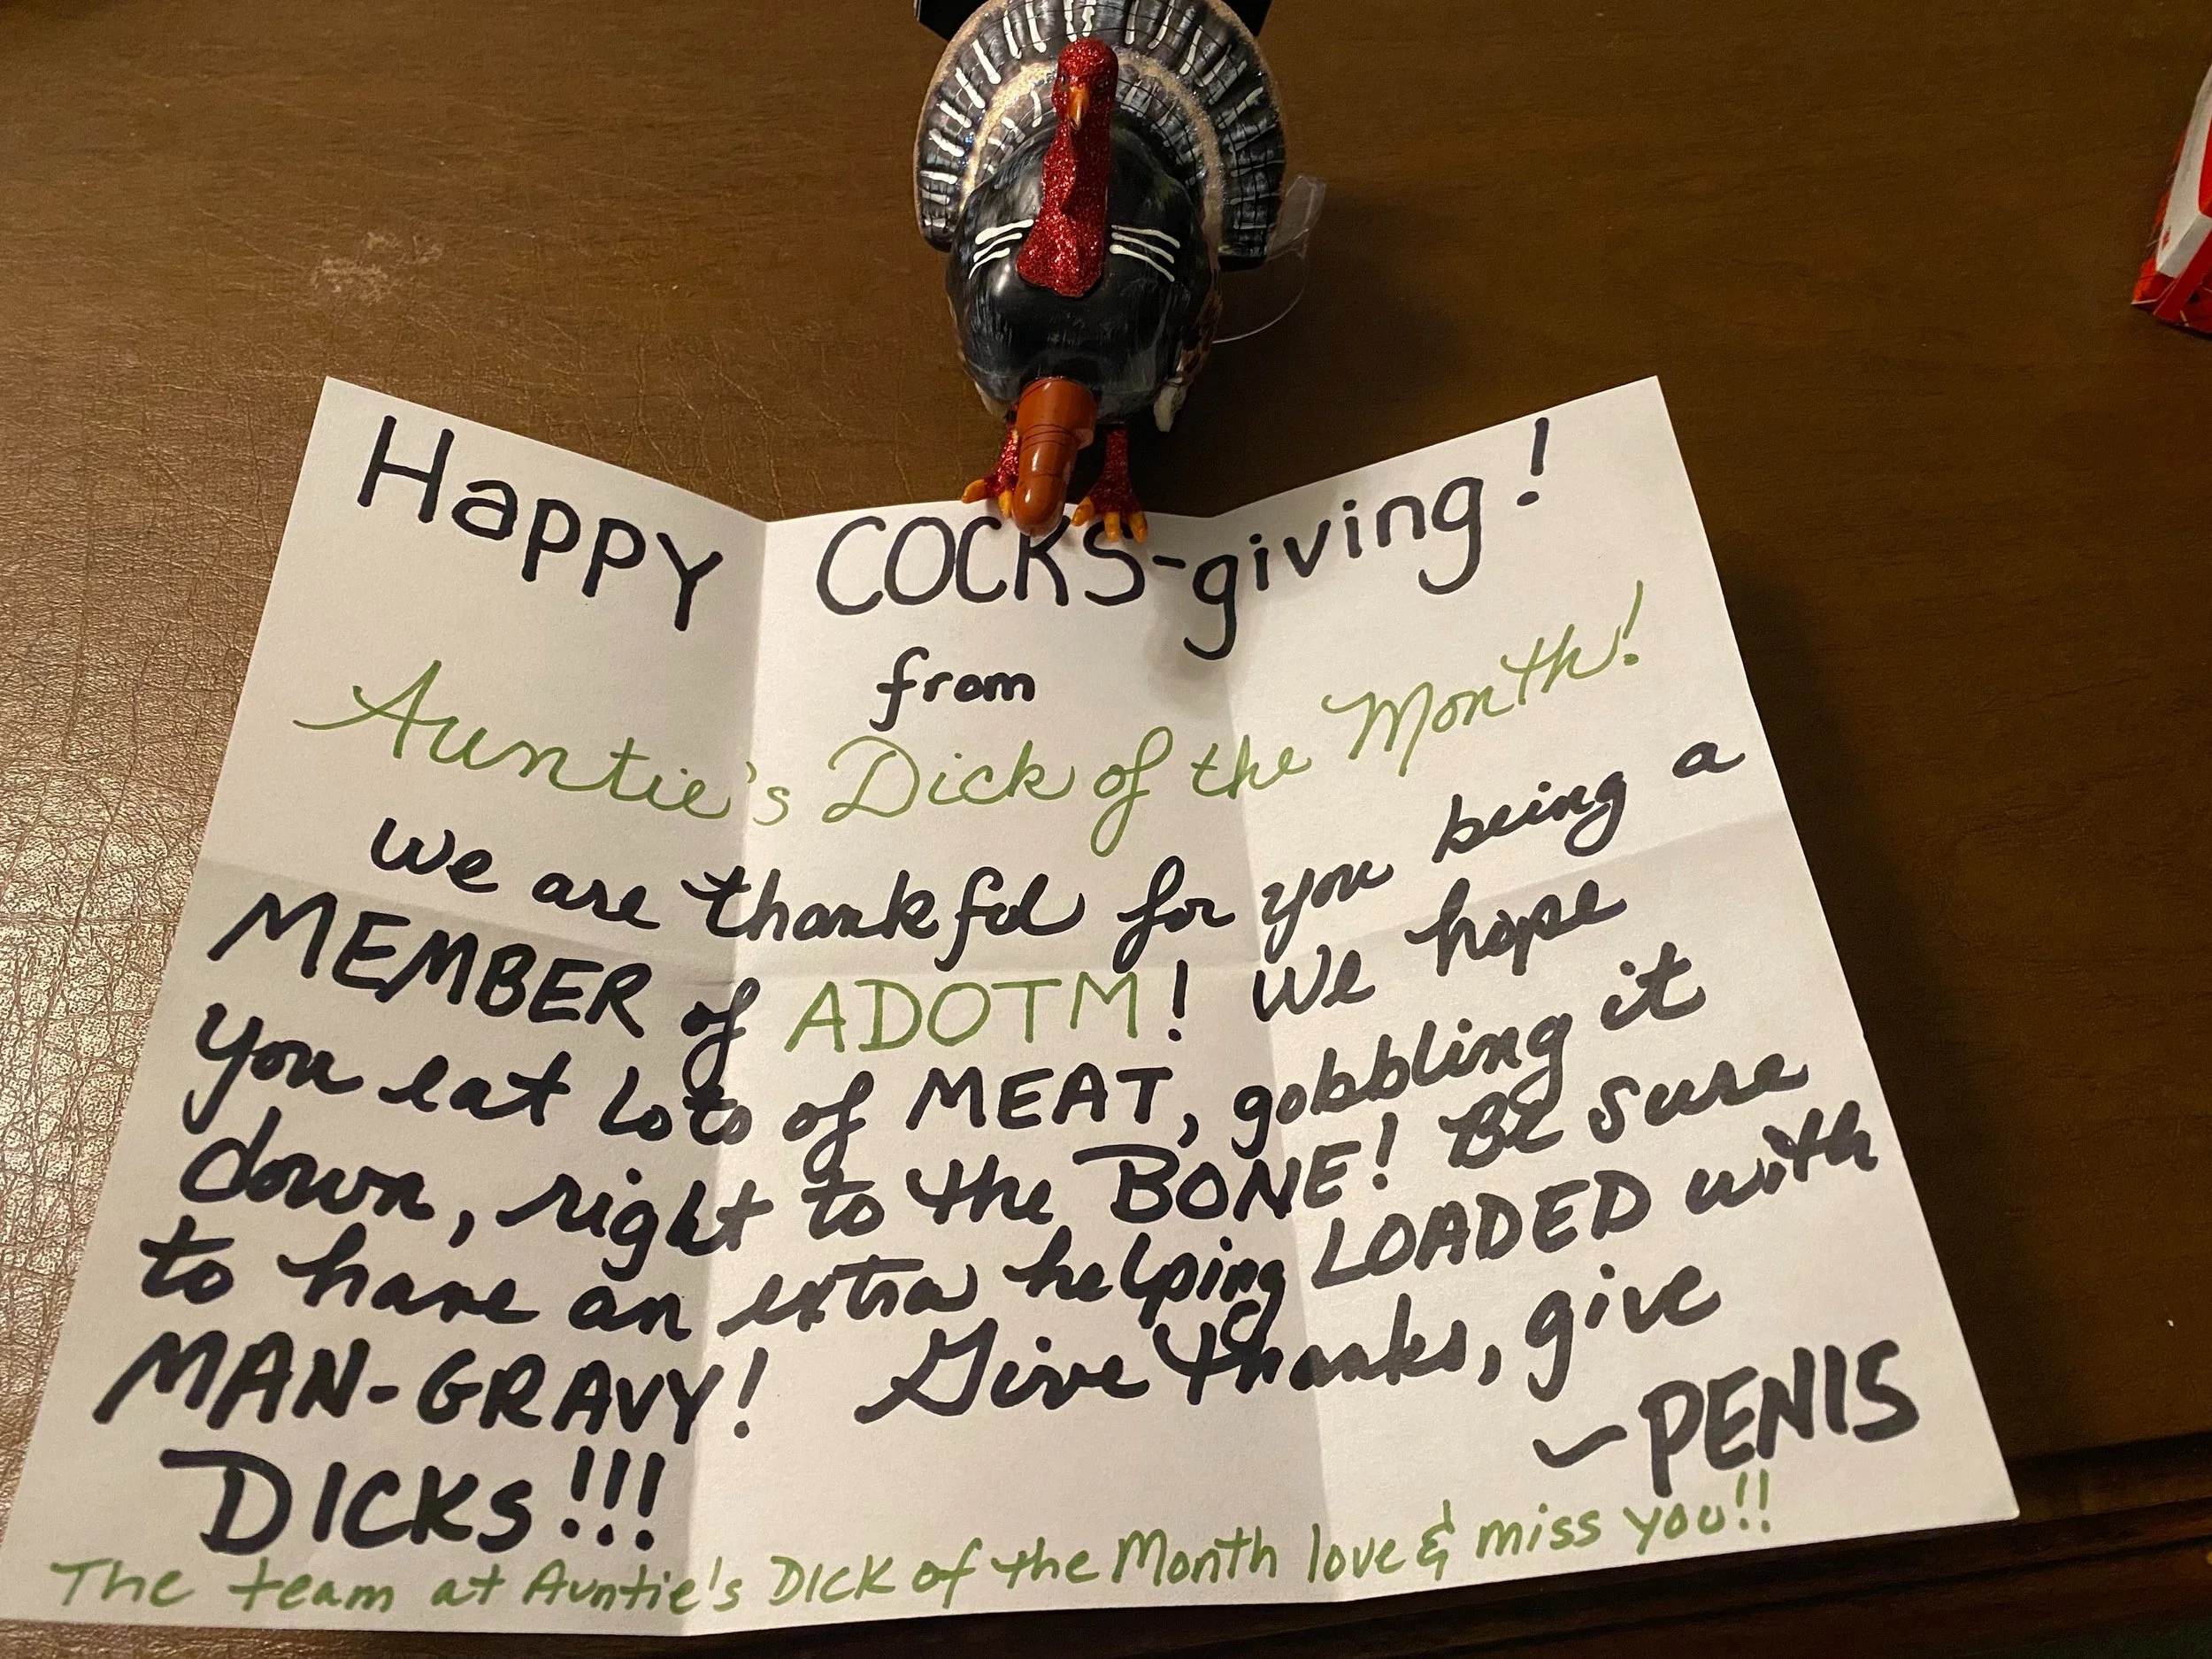 Happy COCKS-giving!
from
Auntie's Dick of the Month!
We are thankful for you being a
MEMBER of ADOTM! We hope
you eat lots of MEAT, gobbling it
down, right to the BONE! Be sure
to have an extra helping LOADED with
MAN-GRAVY! Give thanks, give
DICKS!!! ~PENIS
The team at Auntie's Dick of the Month love & miss you!!